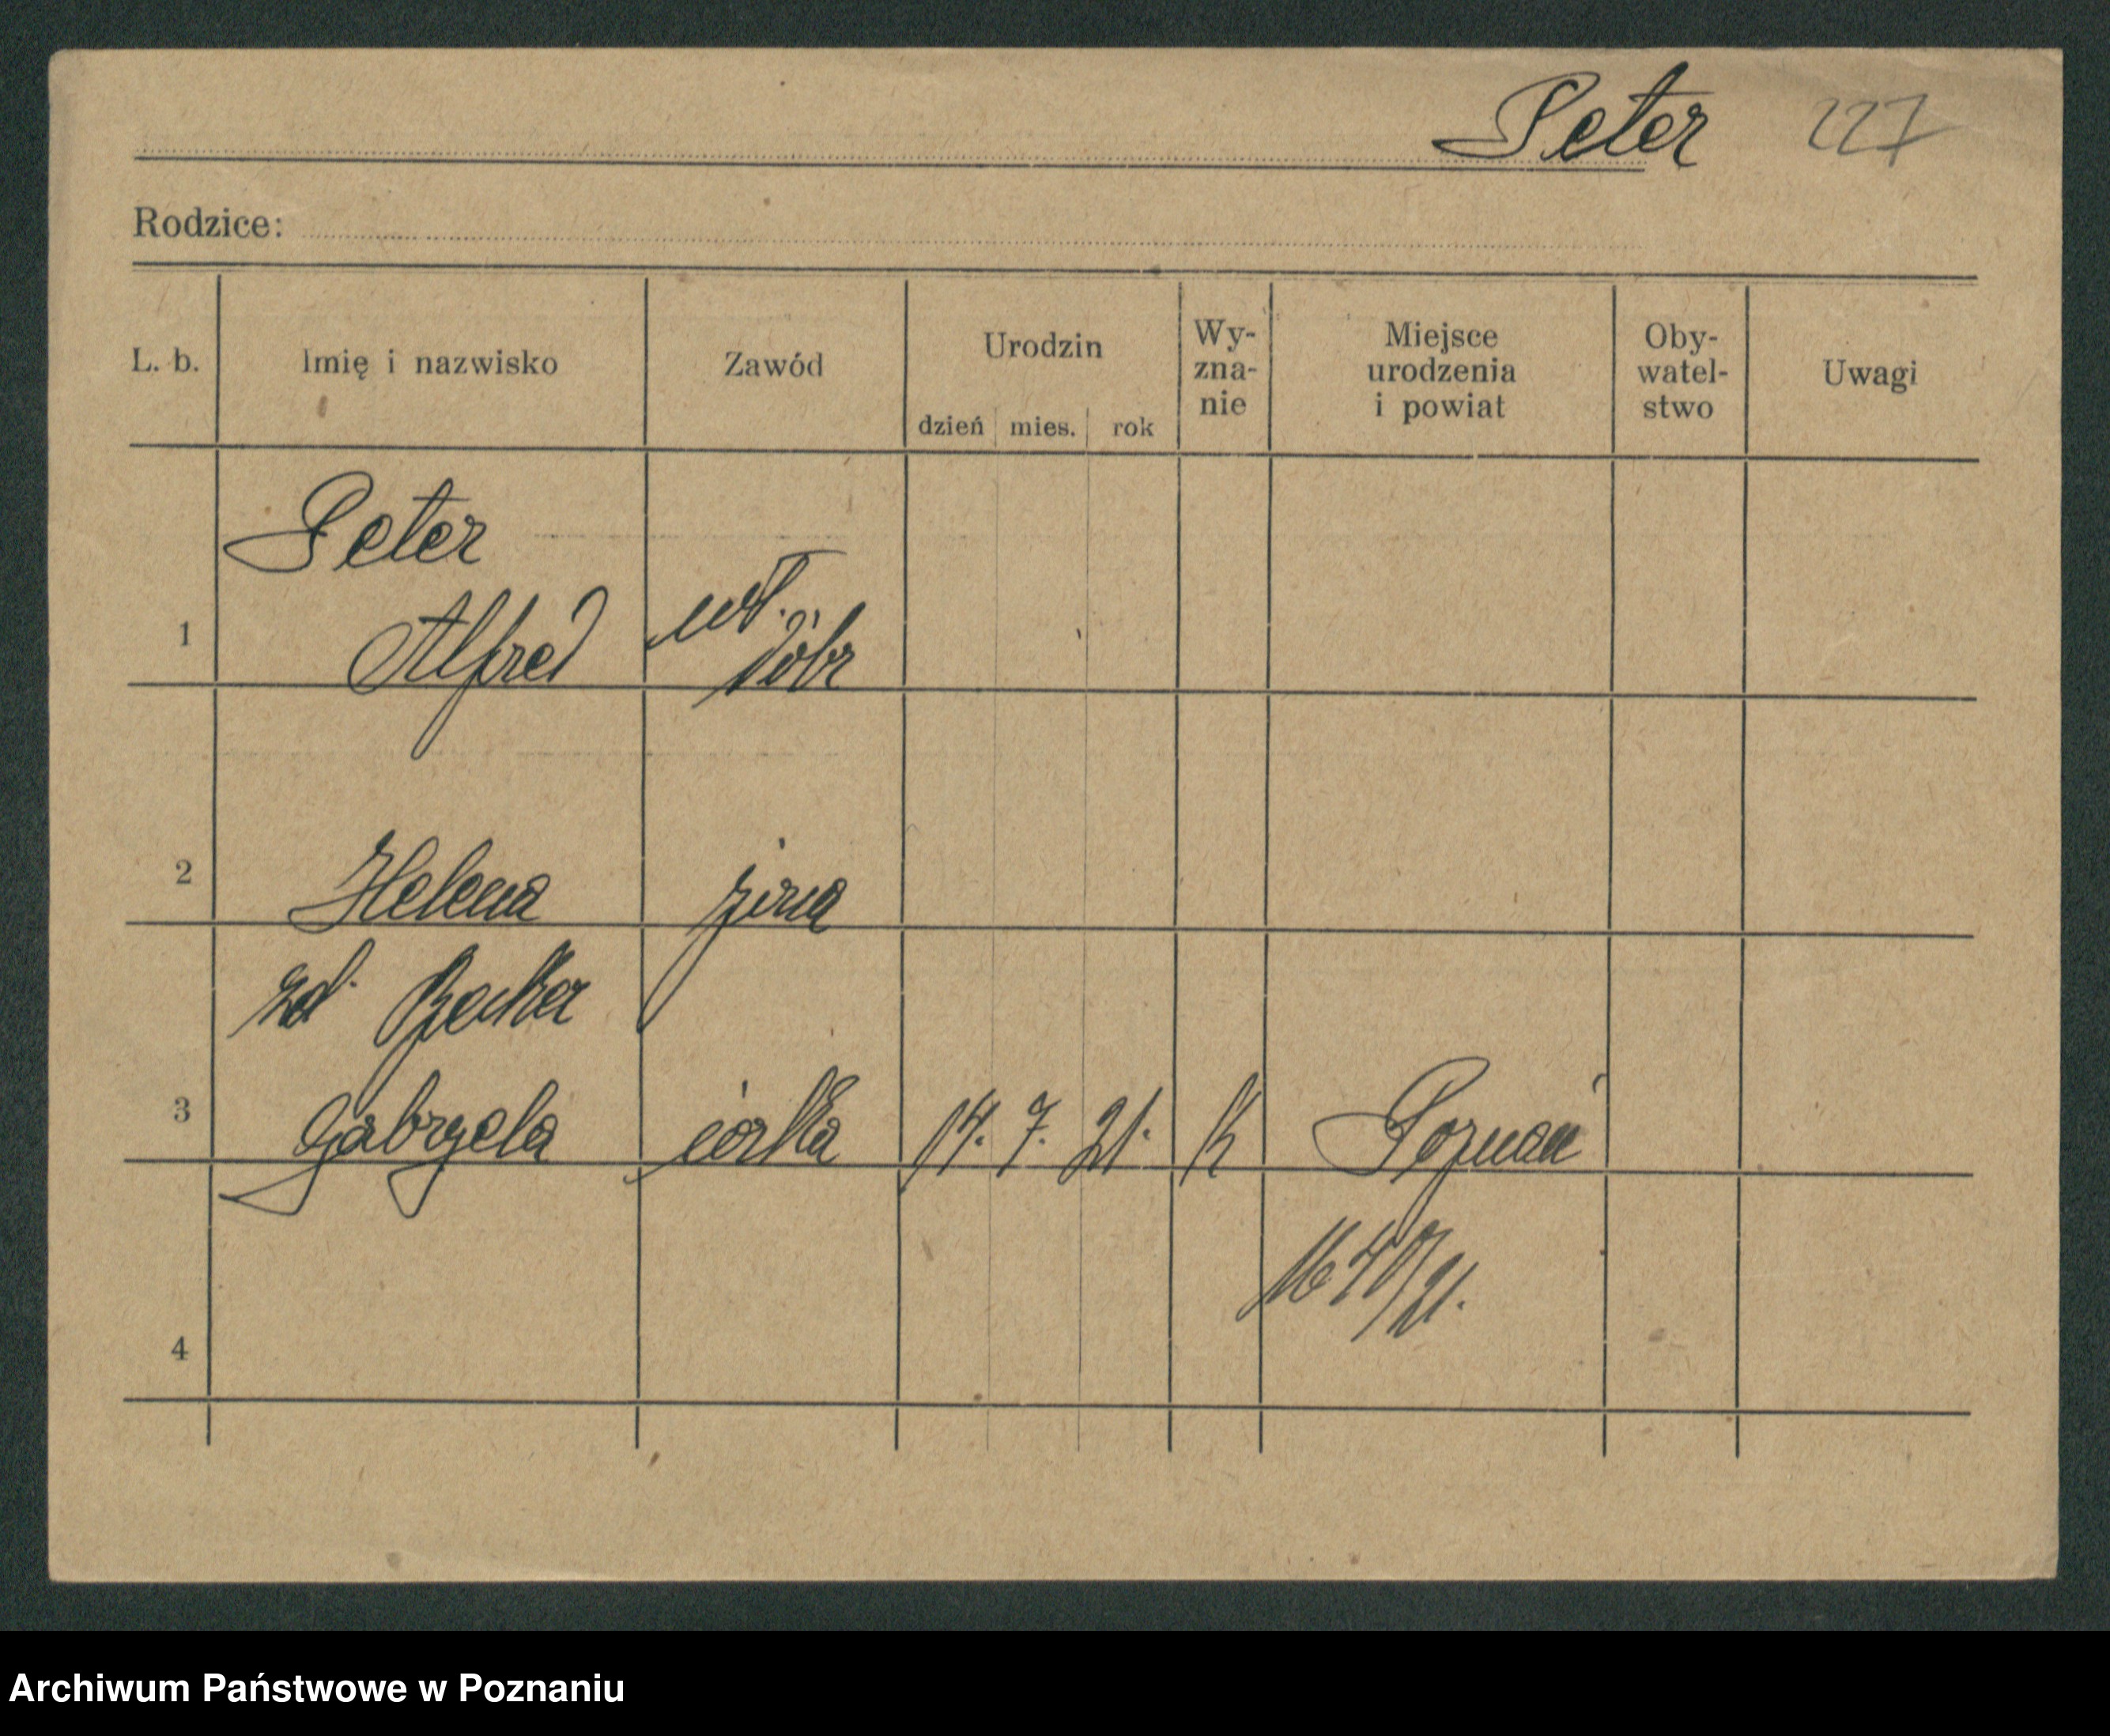 Peter 227
Rodzice:
L. b. Imię i nazwisko Zawód Urodzin Wy-zna-nie Miejsce urodzenia i powiat Oby-watel-stwo Uwagi
dzień mies. rok
Peter
1 Alfred wł. dóbr
2 Helena żona
zd. Becker
3 Gabryela córka 14. 7. 21. K Poznań
/21.
4
Archiwum Państwowe w Poznaniu